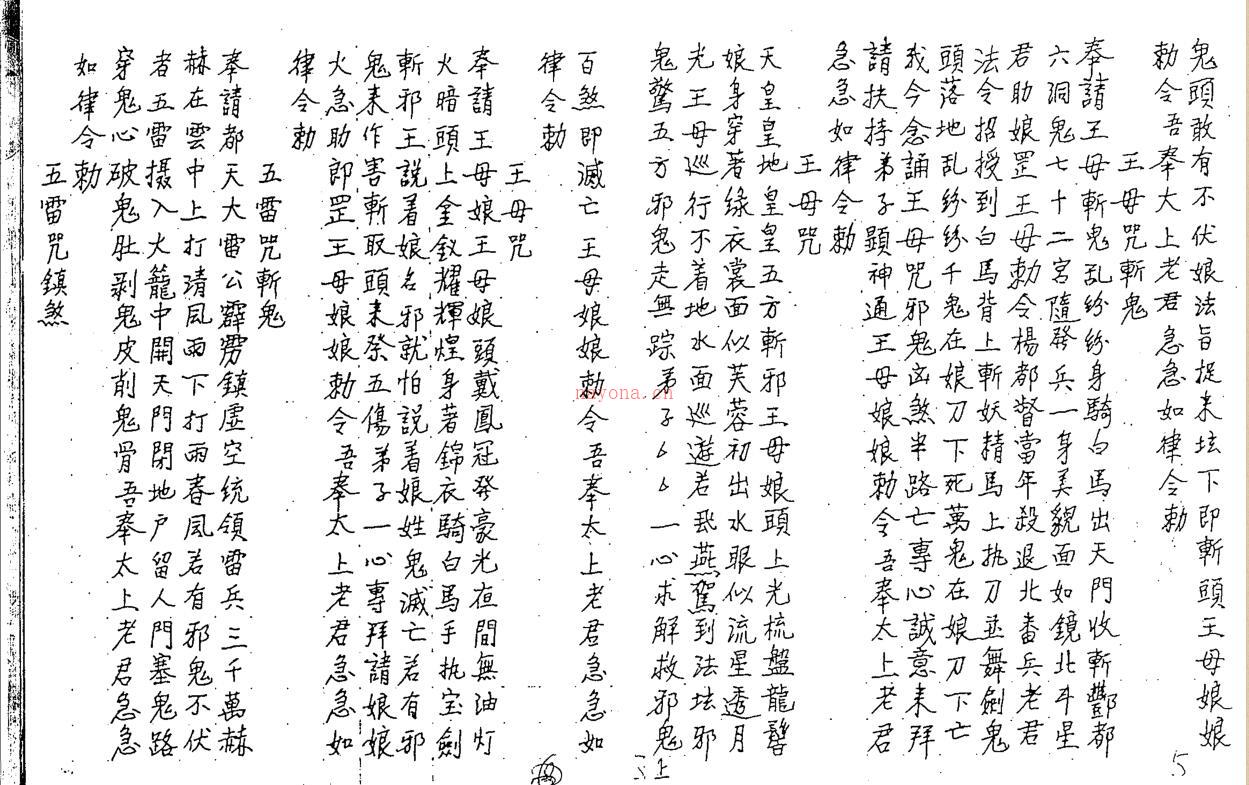 鬼頭敢有不伏娘法旨捉来坛下即斬頭王母娘娘
勅令吾奉大上老君急急如律令勅
王母咒斬鬼
奉請王母斬鬼乱纷纷身騎白馬出天門收斬酆都
六洞鬼七十二宮隨發兵一身美貌面如鏡北斗星
君助娘罡王母勅令楊都督當年殺退北番兵老君
法令招授到白馬背上斬妖精馬上执刀並舞劍鬼
頭落地乱纷纷千鬼在娘刀下死萬鬼在娘刀下亡
我今念誦王母咒邪鬼凶煞半路亡專心誠意来拜
請扶持弟子顯神通王母娘娘勅令吾奉太上老君
急急如律令勅
王母咒
天皇皇地皇皇五方斬邪王母娘頭上光梳盤龍髻
娘身穿著绿衣裳面似芙蓉初出水眼似流星透月
光王母巡行不着地水面巡遊若飛燕駕到法坛邪
鬼驚五方邪鬼走無踪弟子厶厶一心求解救邪鬼
百煞即滅亡王母娘娘勅令吾奉太上老君急急如
律令勅
王母咒
奉請王母娘王母娘頭戴鳳冠發豪光夜間無油灯
火暗頭上金釵耀輝煌身著錦衣騎白馬手执宝劍
斬邪王說着娘名邪就怕說着娘姓鬼滅亡若有邪
鬼来作害斬取頭来祭五傷弟子一心專拜請娘娘
火急助郎罡王母娘娘勅令吾奉太上老君急急如
律令勅
五雷咒斬鬼
奉請都天大雷公霹靂鎮虛空统領雷兵三千萬赫
赫在雲中上打清風雨下打雨春風若有邪鬼不伏
者五雷摄入火籠中開天門閉地户留人門塞鬼路
穿鬼心破鬼肚剥鬼皮削鬼骨吾奉太上老君急急
如律令勅
五雷咒鎮煞
5
上
nayona.cn